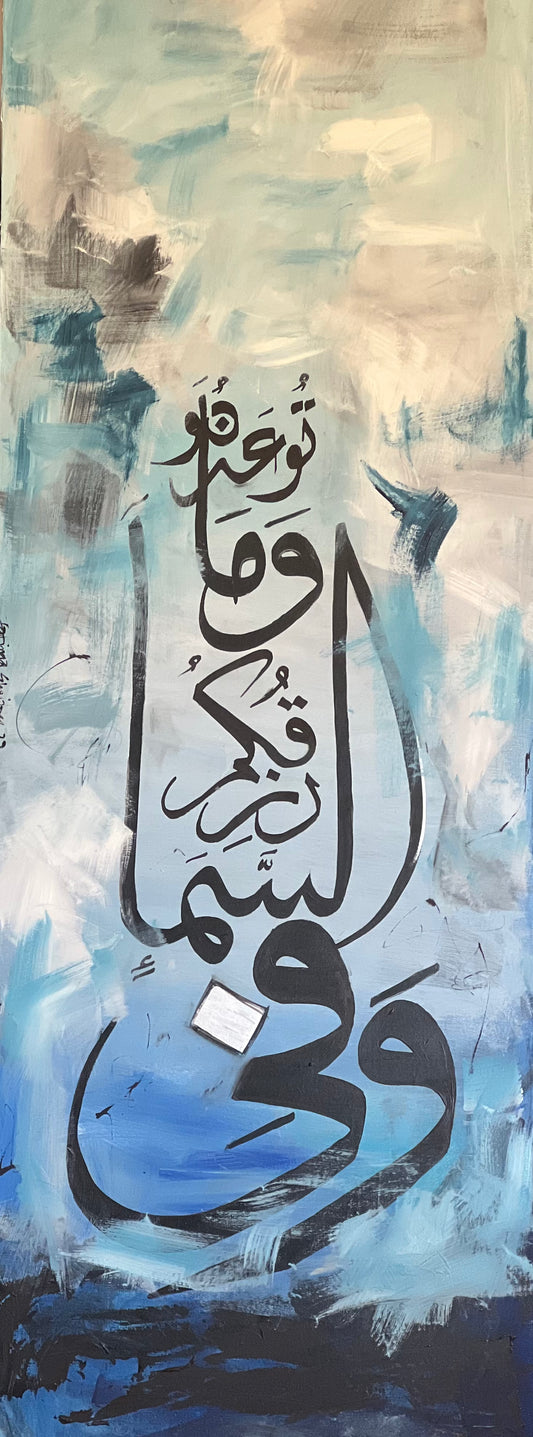 وَفِي
السَّمَاءِ
رِزْقُكُمْ
وَمَا
تُوعَدُونَ